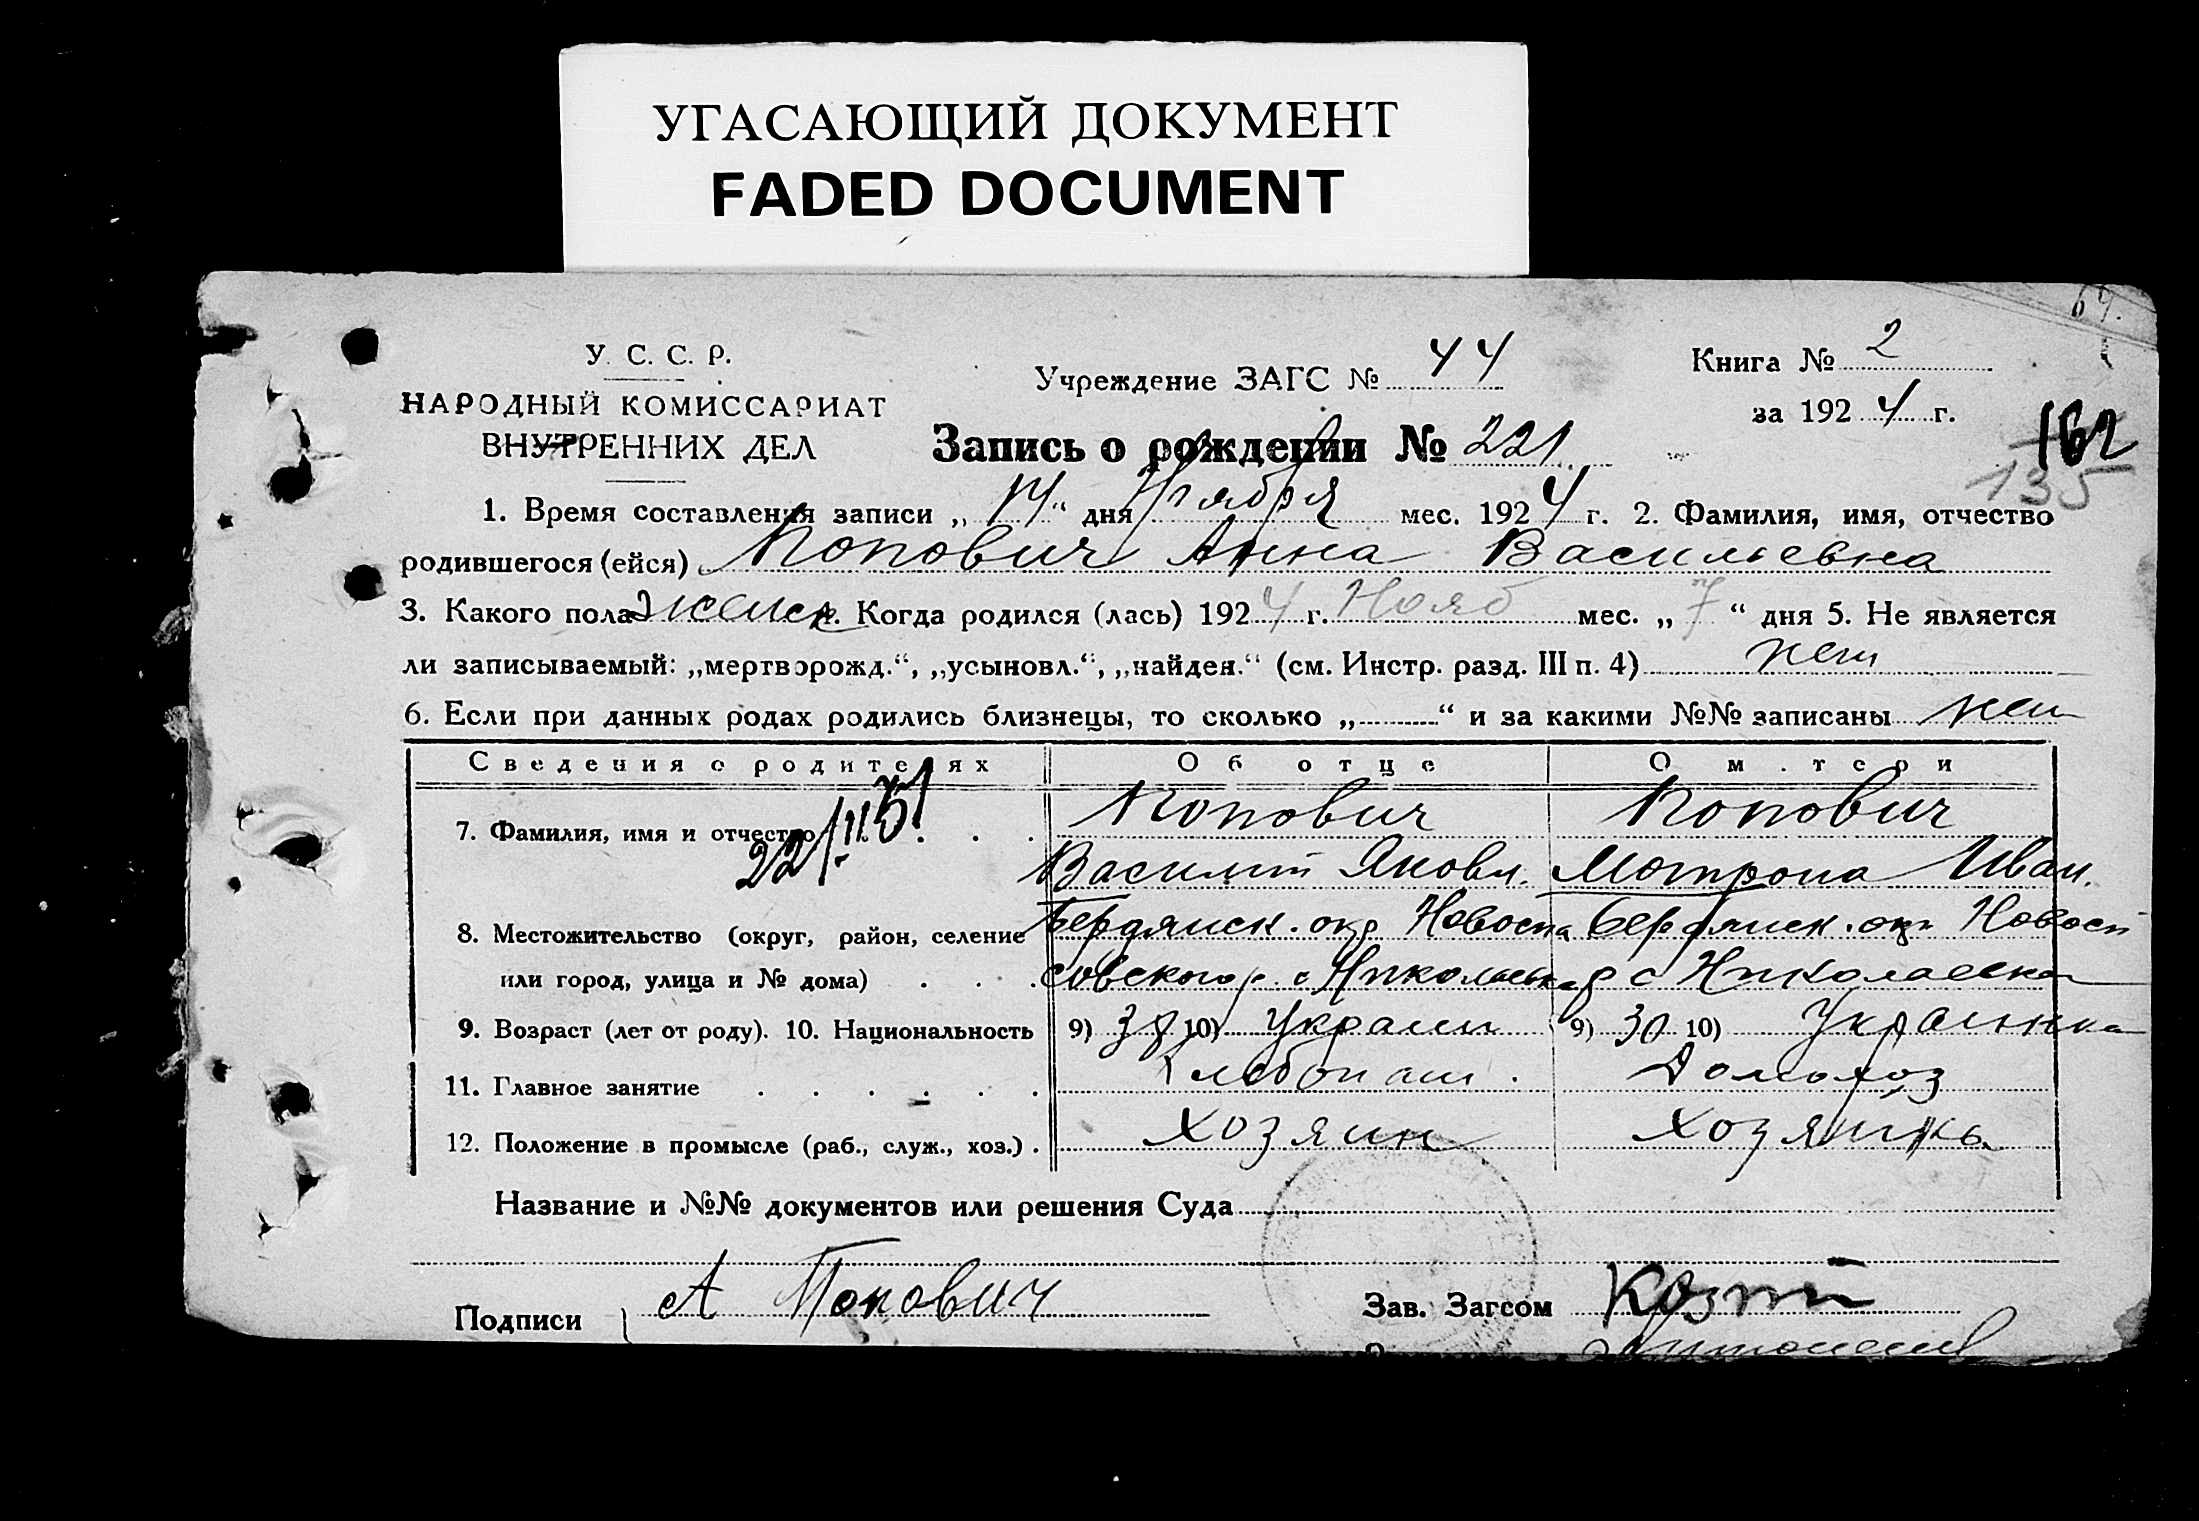 УГАСАЮЩИЙ ДОКУМЕНТ
FADED DOCUMENT
69.
У. С. С. Р.
НАРОДНЫЙ КОМИССАРИАТ
ВНУТРЕННИХ ДЕЛ
Учреждение ЗАГС № 44
Книга № 2
за 1924 г.
Запись о рождении № 221
162
135
1. Время составления записи „14“ дня Ноября мес. 1924 г. 2. Фамилия, имя, отчество
родившегося (ейся) Попович Анна Васильевна
3. Какого пола женск 4. Когда родился (лась) 1924 г. Нояб мес. „7“ дня 5. Не является
ли записываемый: „мертворожд.“, „усыновл.“, „найден.“ (см. Инстр. разд. III п. 4) нет
6. Если при данных родах родились близнецы, то сколько „ “ и за какими №№ записаны нет
Сведения о родителях Об отце О матери
7. Фамилия, имя и отчество Попович Попович
Василий Яковл. Мотрона Иван.
8. Местожительство (округ, район, селение Бердянск. окр Новоспа Бердянск. окр Новосп
или город, улица и № дома) совского р. с Николаевка р с Николаевка
9. Возраст (лет от роду). 10. Национальность 9) 38 10) Украин 9) 30 10) Украинка
11. Главное занятие Хлебопаш. Домохоз
12. Положение в промысле (раб., служ., хоз.) Хозяин Хозяйка
Название и №№ документов или решения Суда
Подписи А Попович Зав. Загсом